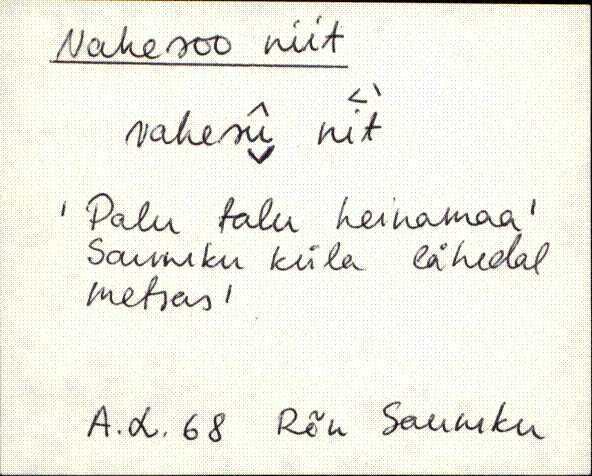 Nahesoo niit
nahesû nit
'Palu talu heinamaa'
Saunaku küla lähedal
metsas'
A.L. 68 Rõu Saunaku